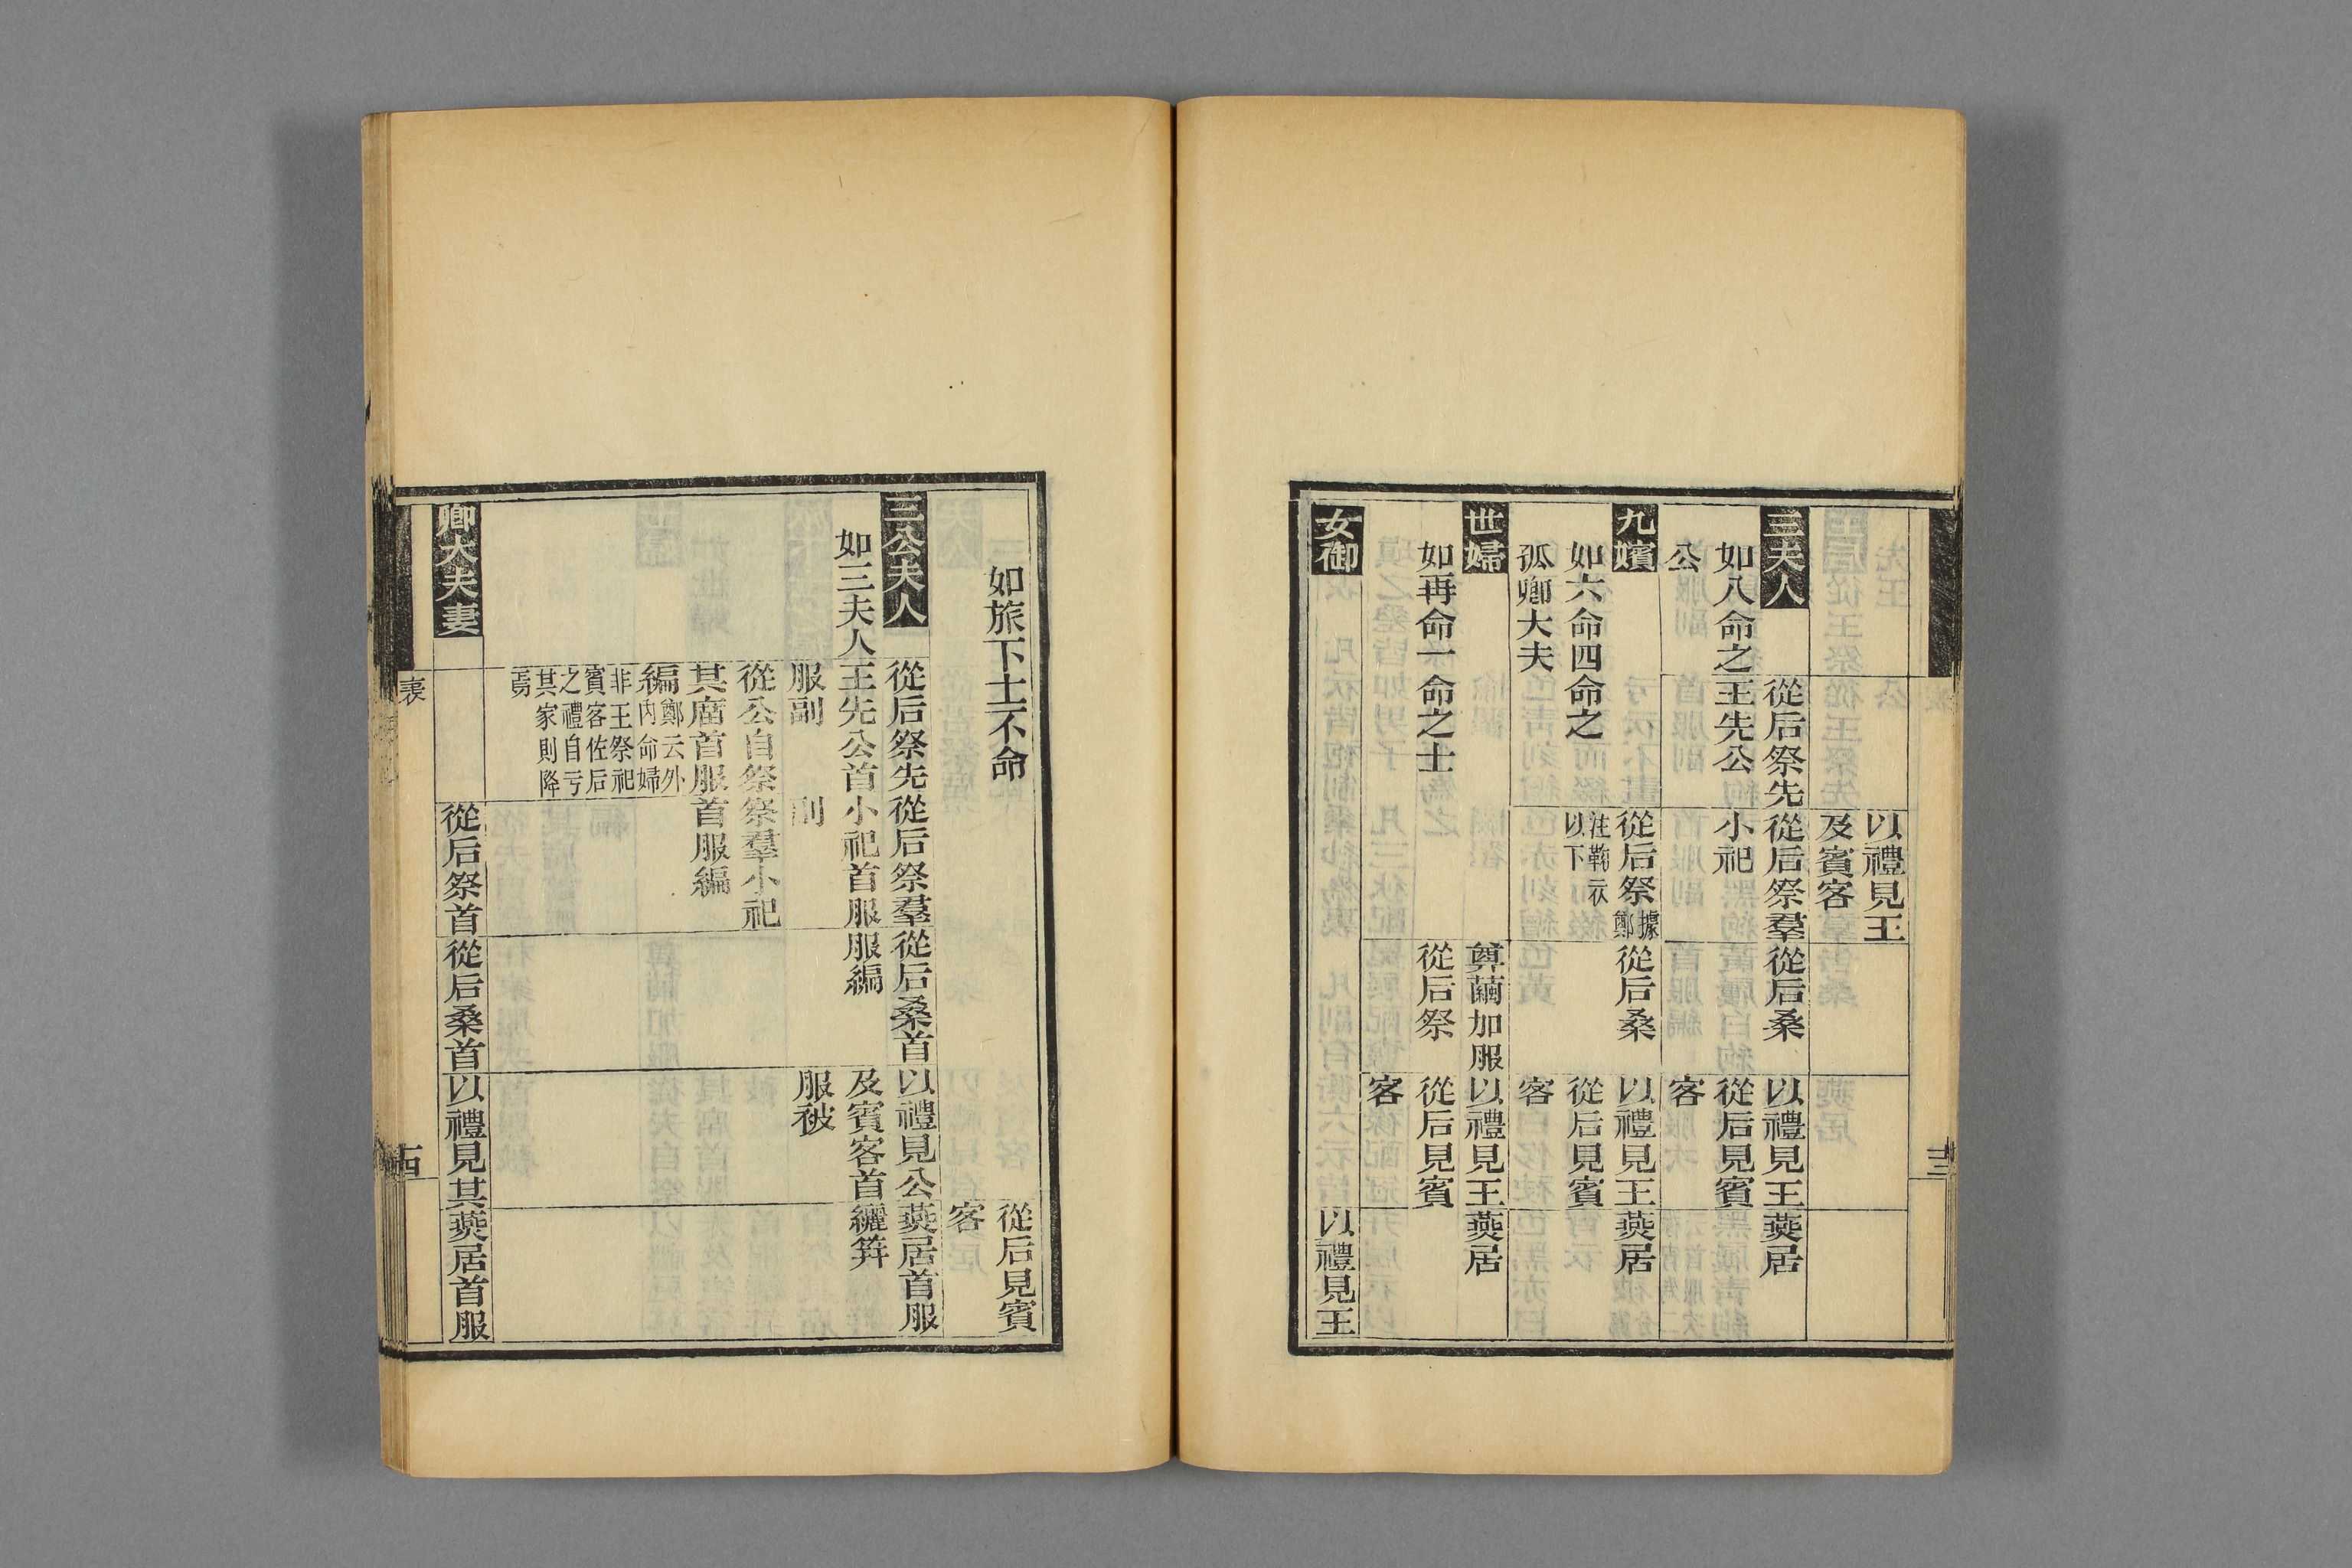 以禮見王
及賓客
三夫人
從后祭先
從后祭羣
從后桑
以禮見王
燕居
如八命之
王先公
小祀
從后見賓
公
客
九嬪
從后祭
據鄭
注鞠衣
以下
從后桑
以禮見王
燕居
如六命四命之
從后見賓
孤卿大夫
客
世婦
奠繭加服
以禮見王
燕居
如再命一命之士
從后祭
從后見賓
客
女御
以禮見王
十三
如旅下士不命
從后見賓
客
三公夫人
從后祭先
從后祭羣
從后桑首
以禮見公
燕居首服
如三夫人
王先公首
小祀首服
服編
及賓客首
纚笄
服副
副
服被
從公自祭
祭羣小祀
其廟首服
首服編
編
鄭云外
内命婦
非王祭祀
賓客佐后
之禮自亏
其家則降
焉
卿大夫妻
從后祭首
從后桑首
以禮見其
燕居首服
表
十四